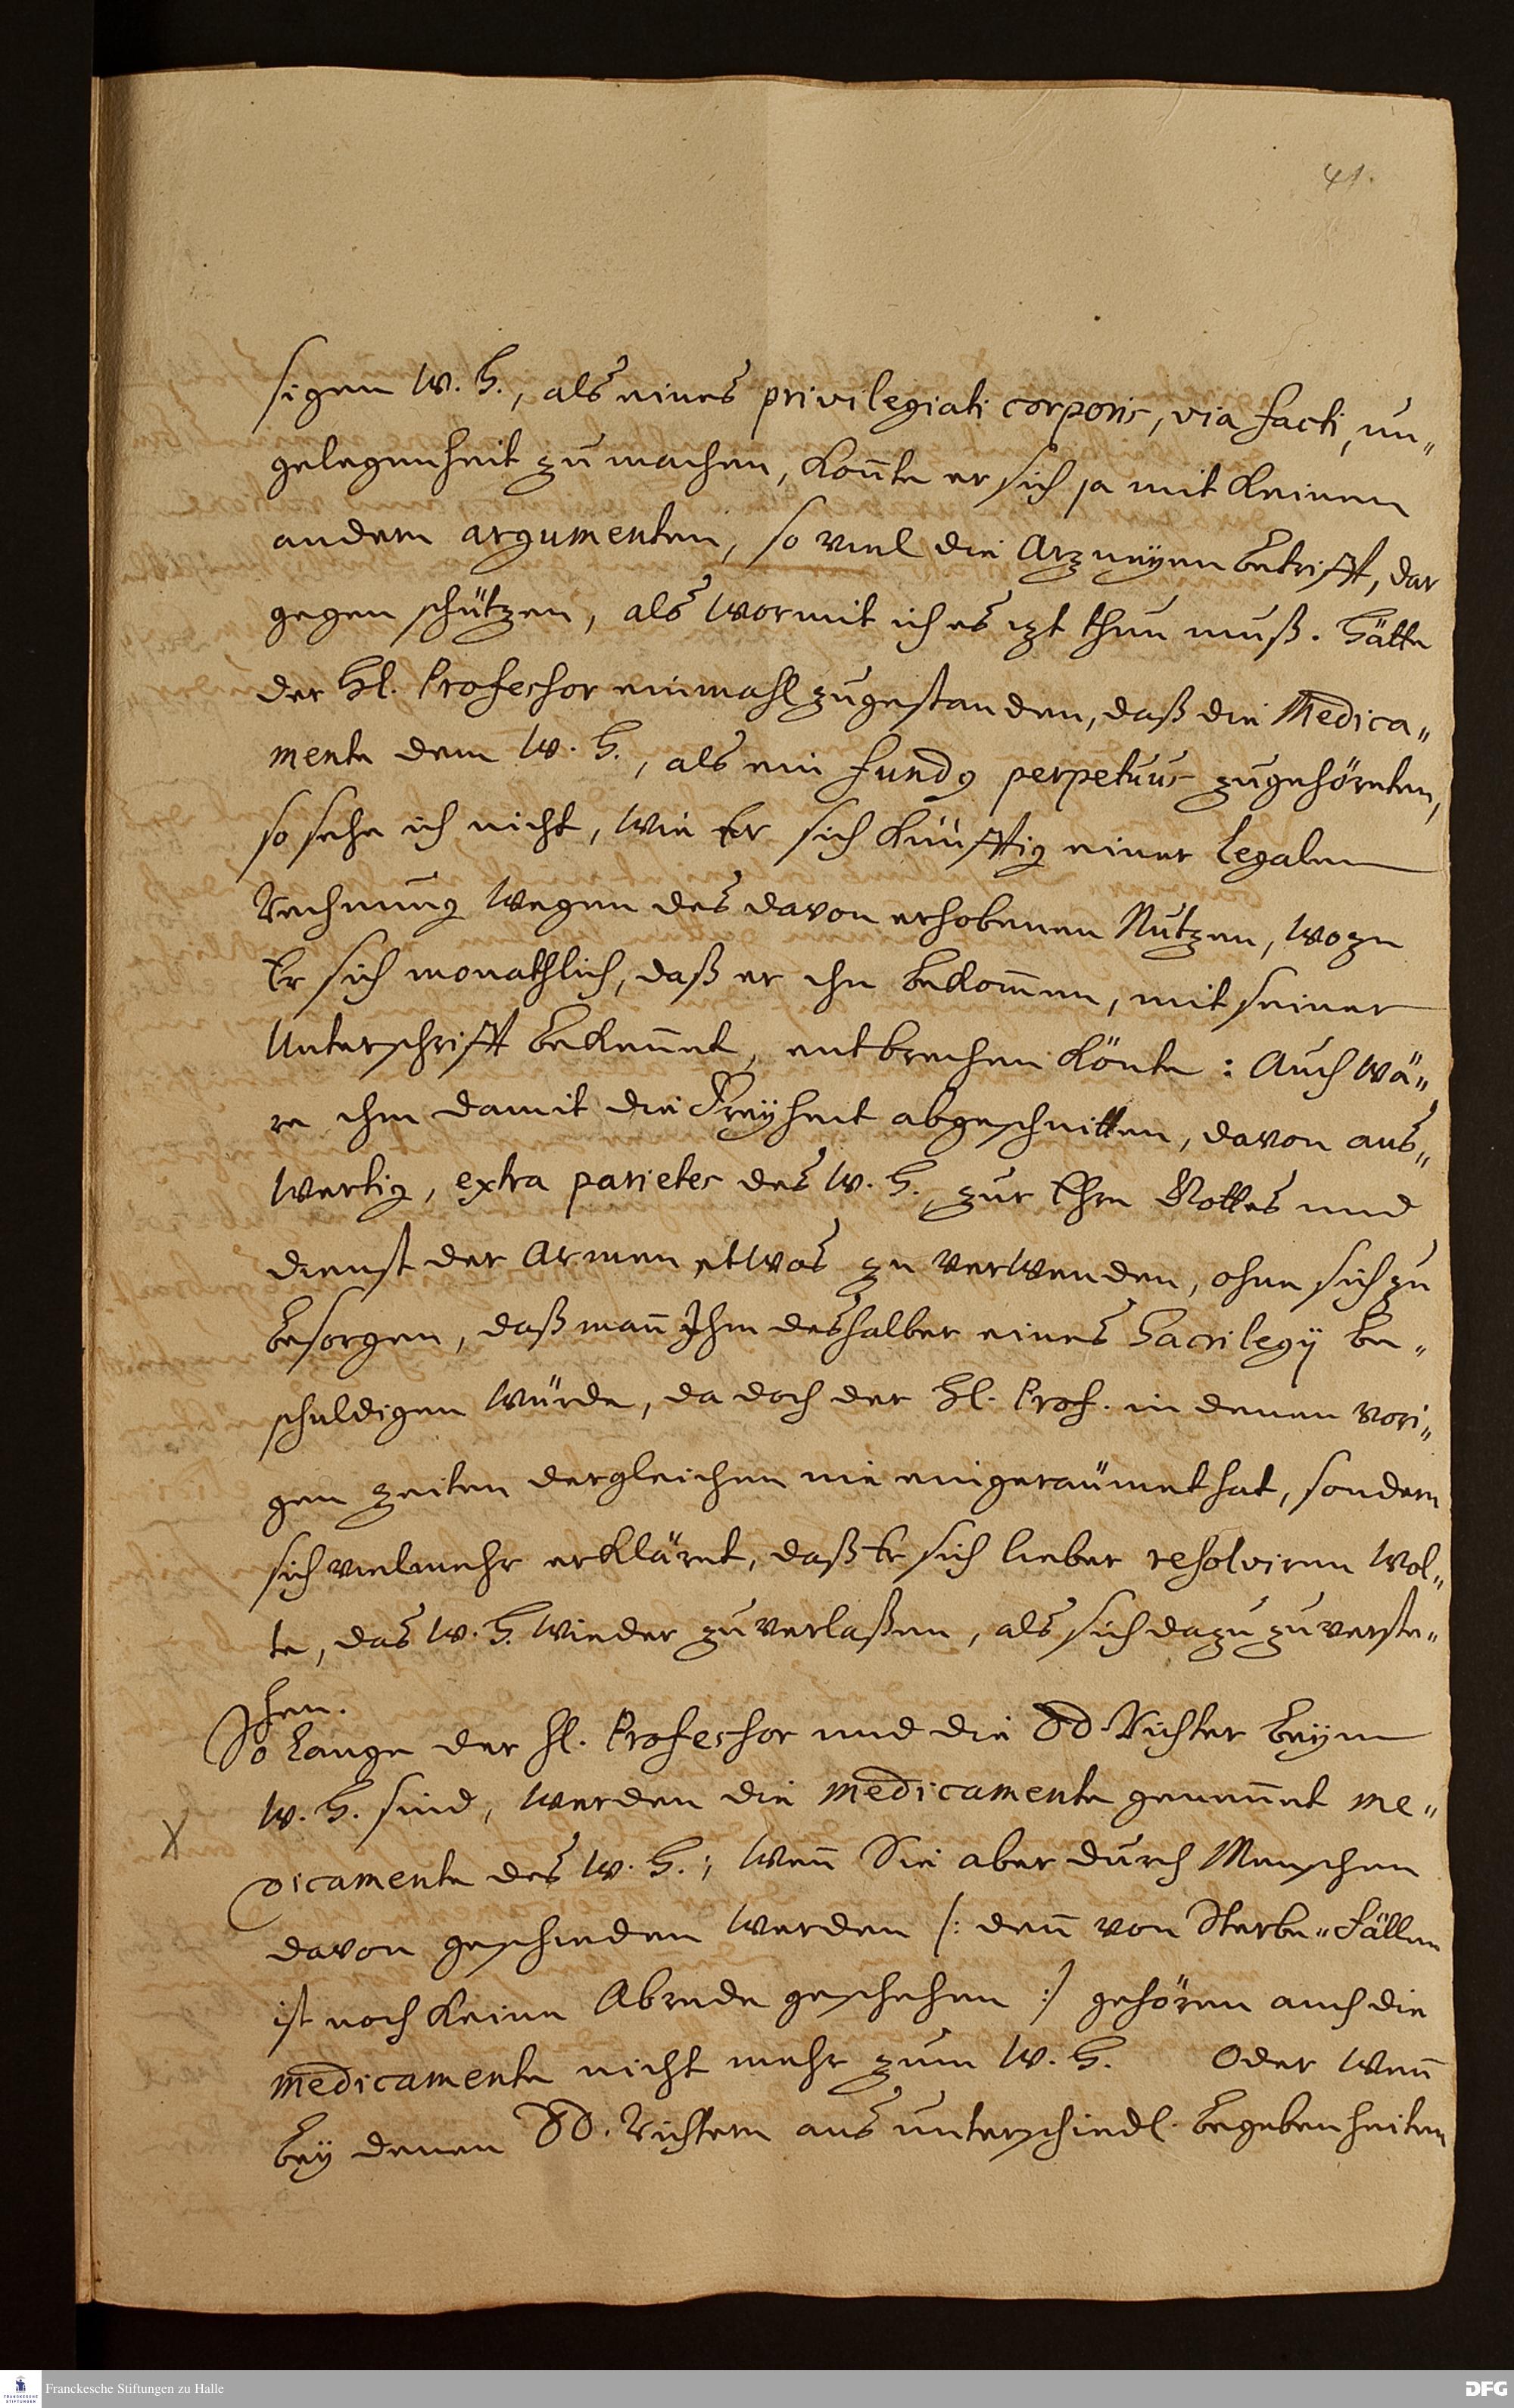 41.
sigen W. H., als eines privilegiati corporis, via facti, un-
gelegenheit zu machen, kom̄te er sich ja mit keinen
andern argumenten, so viel die Arzneyen betrifft, dar
gegen schützen, als wormit ich es izt thun muß. Hätte
der Hl. Professor einmahl zugestanden, daß die Medica-
mente dem W. H., als ein fundg perpetuus zugehöreten,
so sehe ich nicht, wie Er sich künfftig einer legalen
Rechnung wegen des davon erhobenen Nutzen, wozu
Er sich monathlich, daß er ihn bekom̄en, mit seiner
Unterschrifft beken̄et, entbrechen könte: Auch wä-
re ihm damit die Freyheit abgeschnitten, davon aus-
wertig, extra parietes des W. H. zur Ehre Gottes und
dienst der Armen etwas zu verwenden, ohne sich zu
besorgen, daß man̄ Ihm deshalber eines Sacrilegij be-
schuldigen würde, da doch der Hl. Prof. in denen vori-
gen zeiten dergleichen nie eingeräumet hat, sondern
sich vielmehr erkläret, daß Er sich lieber resolviren wol-
te, das W. H. wieder zu verlaßen, als sich dazu zu verste-
hen.
So lange der Hl. Professor und die DD. Richter beym
W. H. sind, werden die medicamente genen̄et me-
dicamente des W. H.; wen̄ Sie aber durch Menschen
davon geschieden werden /: den̄ von Sterbe-Fällen
ist noch keine Abrede geschehen :/ gehören auch die
medicamente nicht mehr zum W. H. Oder wen̄
bey denen DD. Richtern aus unterschiedl. begebenheiten
Franckesche Stiftungen zu Halle
DFG